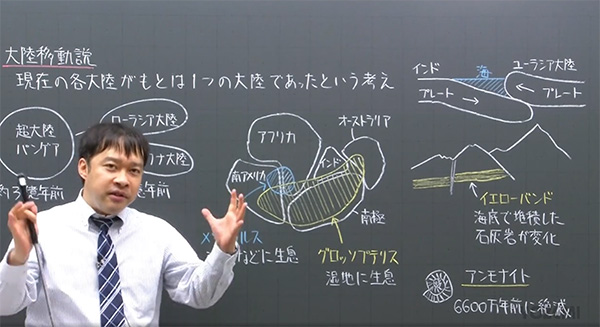 大陸移動説
現在の各大陸がもとは1つの大陸であったという考え
超大陸
パンゲア
ローラシア大陸
ナ大陸
億年前
年前
アフリカ
オーストラリア
インド
南アメリカ
南極
などに生息
グロッソプテリス
湿地に生息
インド
海
ユーラシア大陸
プレート
プレート
イエローバンド
海底で堆積した
石灰岩が変化
アンモナイト
6600万年前に絶滅